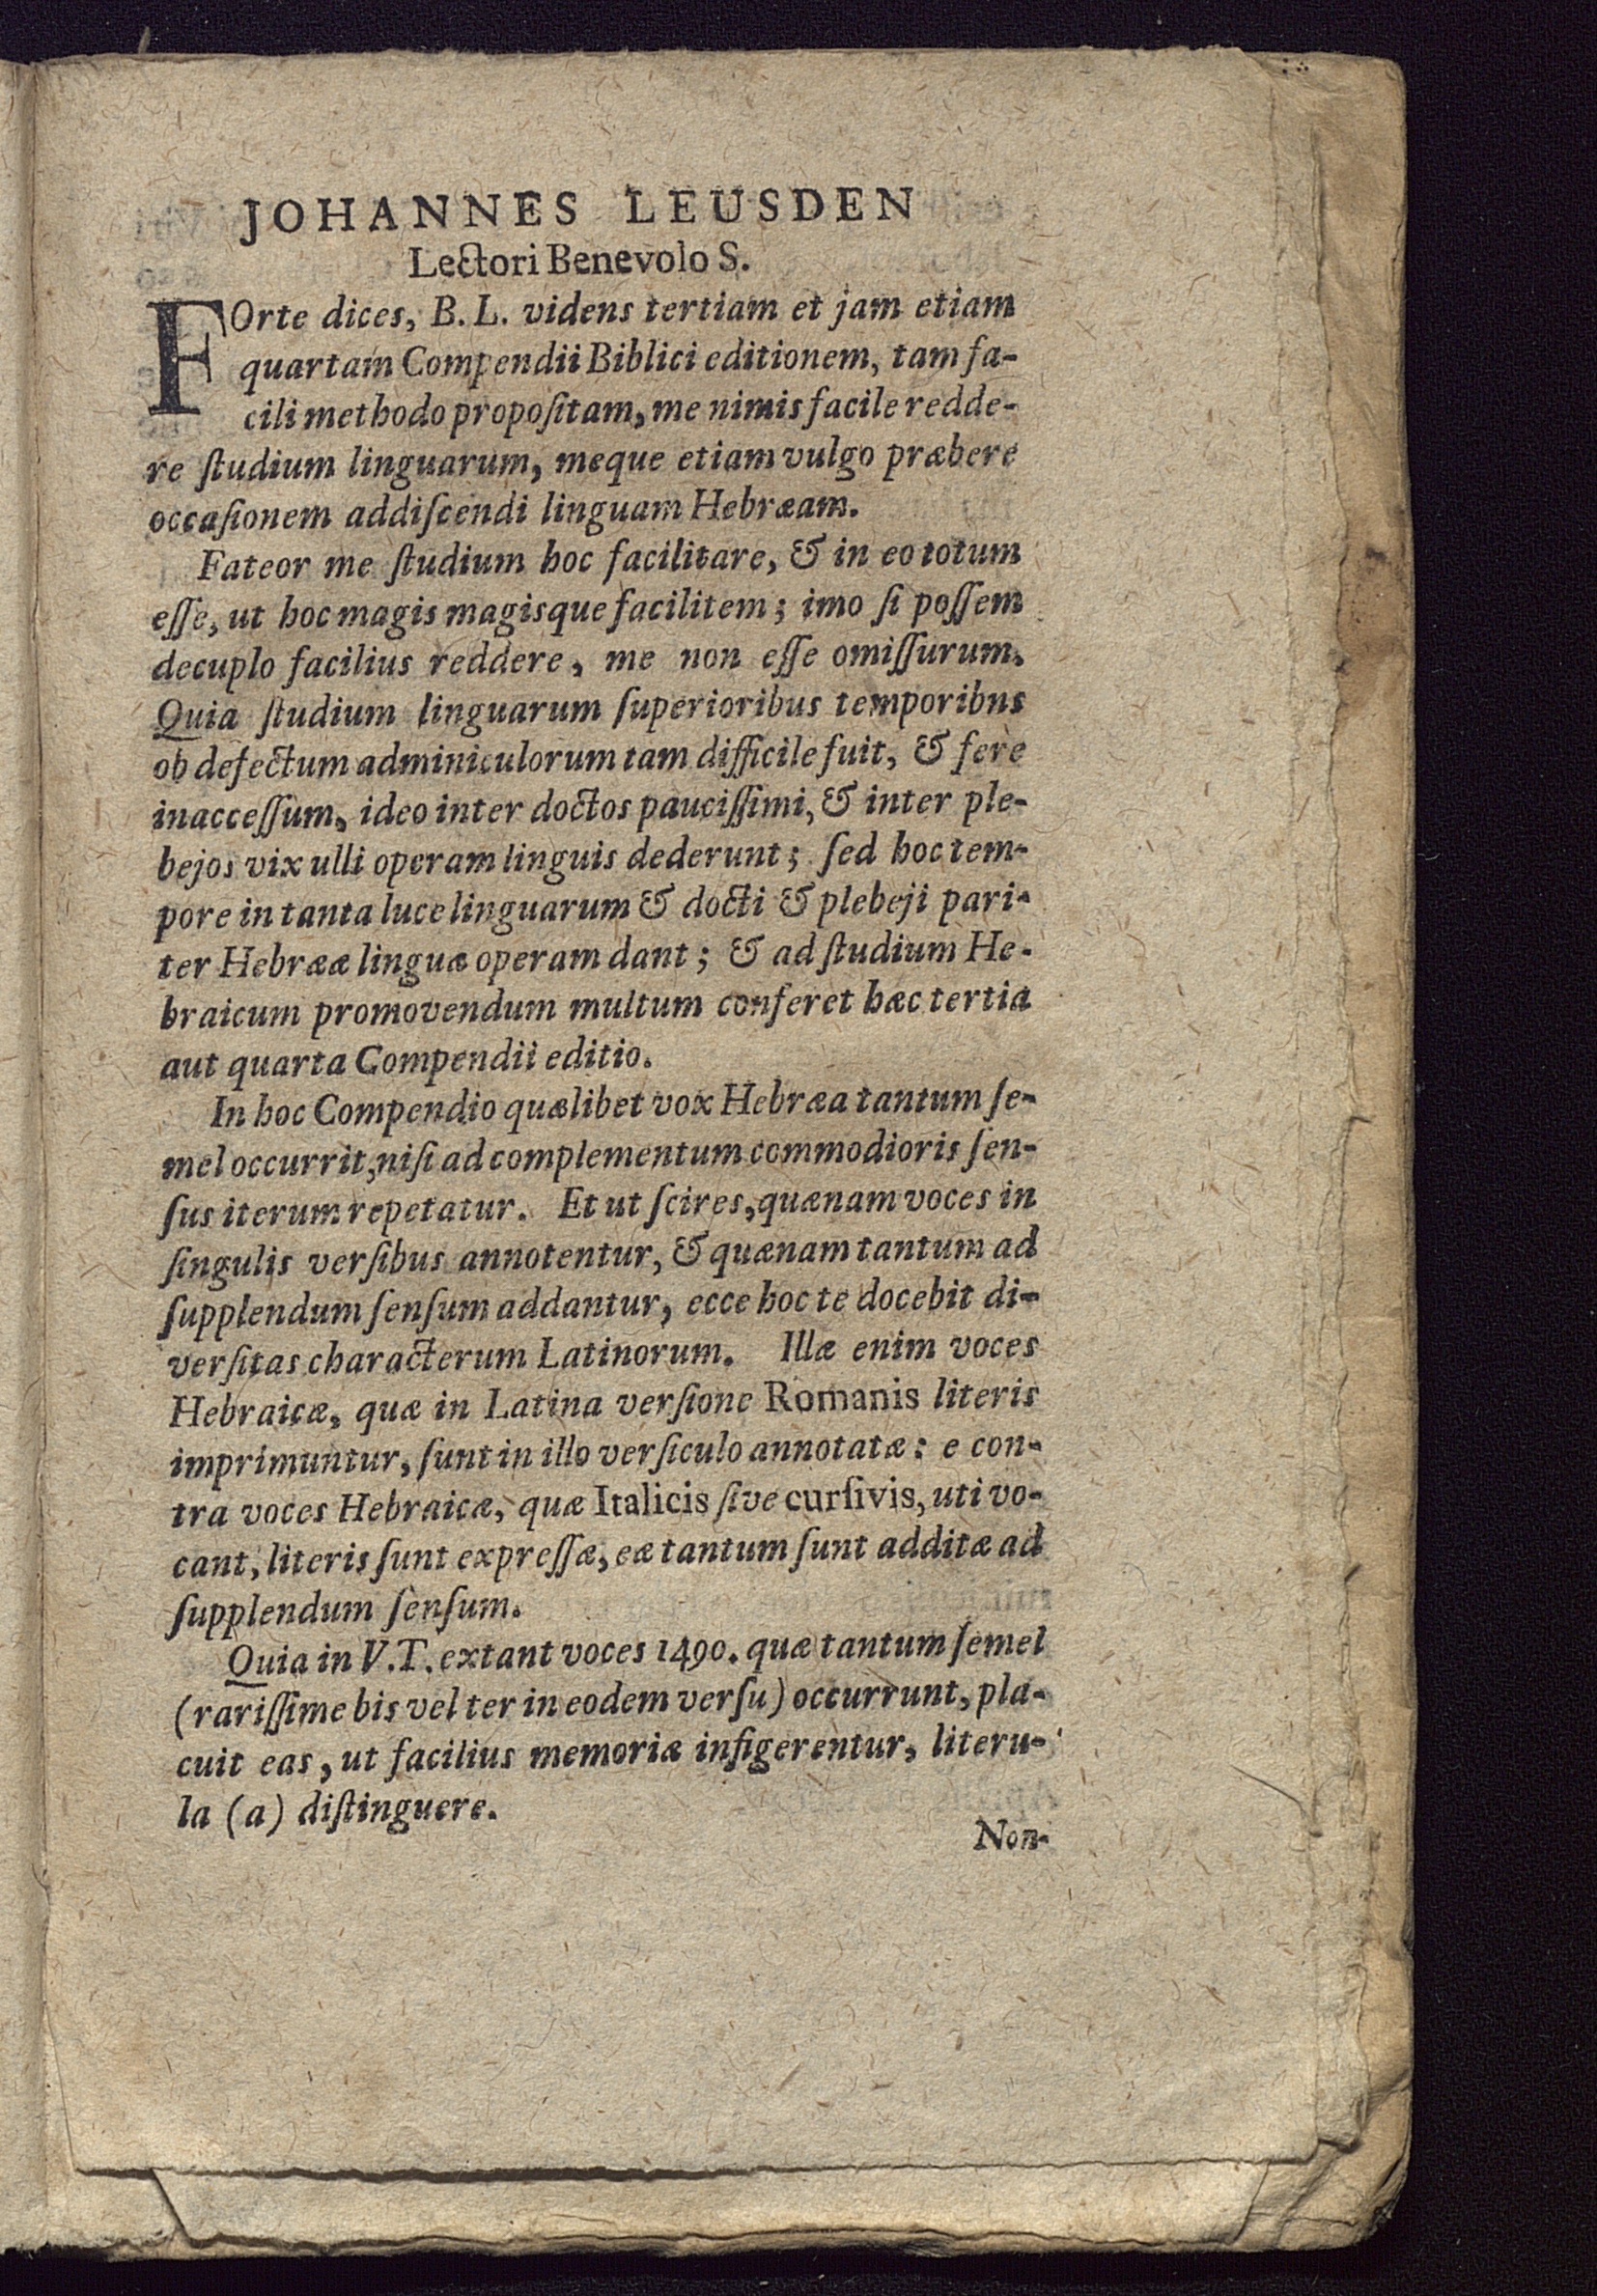 JOHANNES LEUSDEN
Lectori Benevolo S.
FOrte dices, B. L. videns tertiam et jam etiam
quartam Compendii Biblici editionem, tam fa-
cili methodo propoſitam, me nimis facile redde-
re ſtudium linguarum, meque etiam vulgo præbere
occaſionem addiſcendi linguam Hebræam.
Fateor me ſtudium hoc facilitare, & in eo totum
eſſe, ut hoc magis magisque facilitem; imo ſi poſſem
decuplo facilius reddere, me non eſſe omiſſurum.
Quia ſtudium linguarum ſuperioribus temporibns
ob defectum adminiculorum tam difficile fuit, & fere
inacceſſum, ideo inter doctos pauciſſimi, & inter ple-
bejos vix ulli operam linguis dederunt; ſed hoc tem-
pore in tanta luce linguarum & docti & plebeji pari-
ter Hebrææ linguæ operam dant; & ad ſtudium He-
braicum promovendum multum conferet hæc tertia
aut quarta Compendii editio.
In hoc Compendio quælibet vox Hebræa tantum ſe-
mel occurrit, niſi ad complementum commodioris ſen-
ſus iterum repetatur. Et ut ſcires, quænam voces in
ſingulis verſibus annotentur, & quænam tantum ad
ſupplendum ſenſum addantur, ecce hoc te docebit di-
verſitas characterum Latinorum. Illæ enim voces
Hebraicæ, quæ in Latina verſione Romanis literis
imprimuntur, ſunt in illo verſiculo annotatæ: e con-
tra voces Hebraicæ, quæ Italicis ſive curſivis, uti vo-
cant, literis ſunt expreſſæ, eæ tantum ſunt additæ ad
ſupplendum ſenſum.
Quia in V. T. extant voces 1490. quæ tantum ſemel
(rariſſime bis vel ter in eodem verſu) occurrunt, pla-
cuit eas, ut facilius memoriæ infigerentur, literu-
la (a) diſtinguere.
Non-